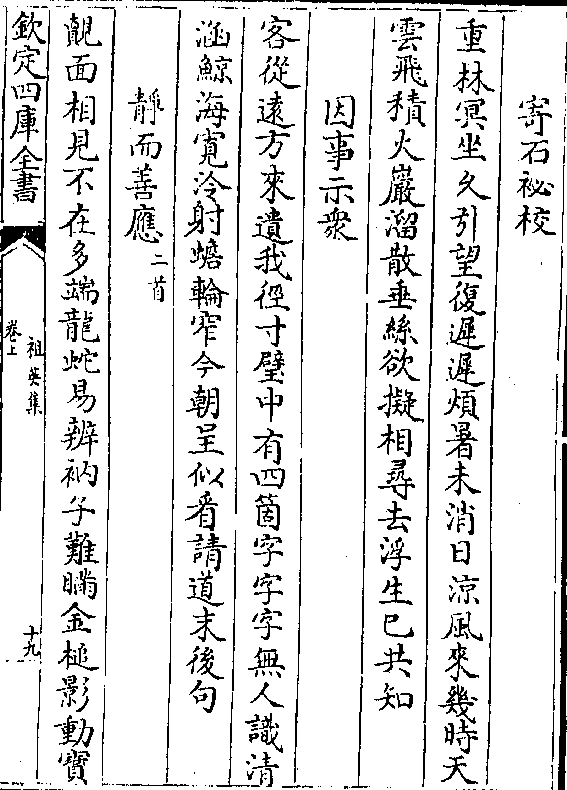 寄石祕校
重林冥坐久引望復遲遲煩暑未消日涼風來幾時天
雲飛積火巖溜散垂絲欲擬相尋去浮生已共知
因事示衆
客從遠方來遺我徑寸璧中有四箇字字字無人識清
涵鯨海寬泠射蟾輪窄今朝呈似看請道末後句
靜而善應二首
覿面相見不在多端龍蛇易辨衲子難瞞金槌影動寶
欽定四庫全書
祖英集
卷上
十九